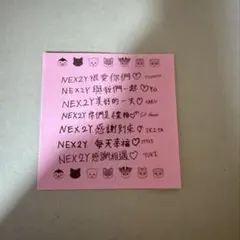 NEX2Y 很愛你們♡
NEX2Y 與我們一起♡YU
NEX2Y 美好的一天♡
NEX2Y 你們是禮物♡
NEX2Y 感謝到來♡
NEX2Y 每天幸福♡
NEX2Y 感謝相遇♡YUKI